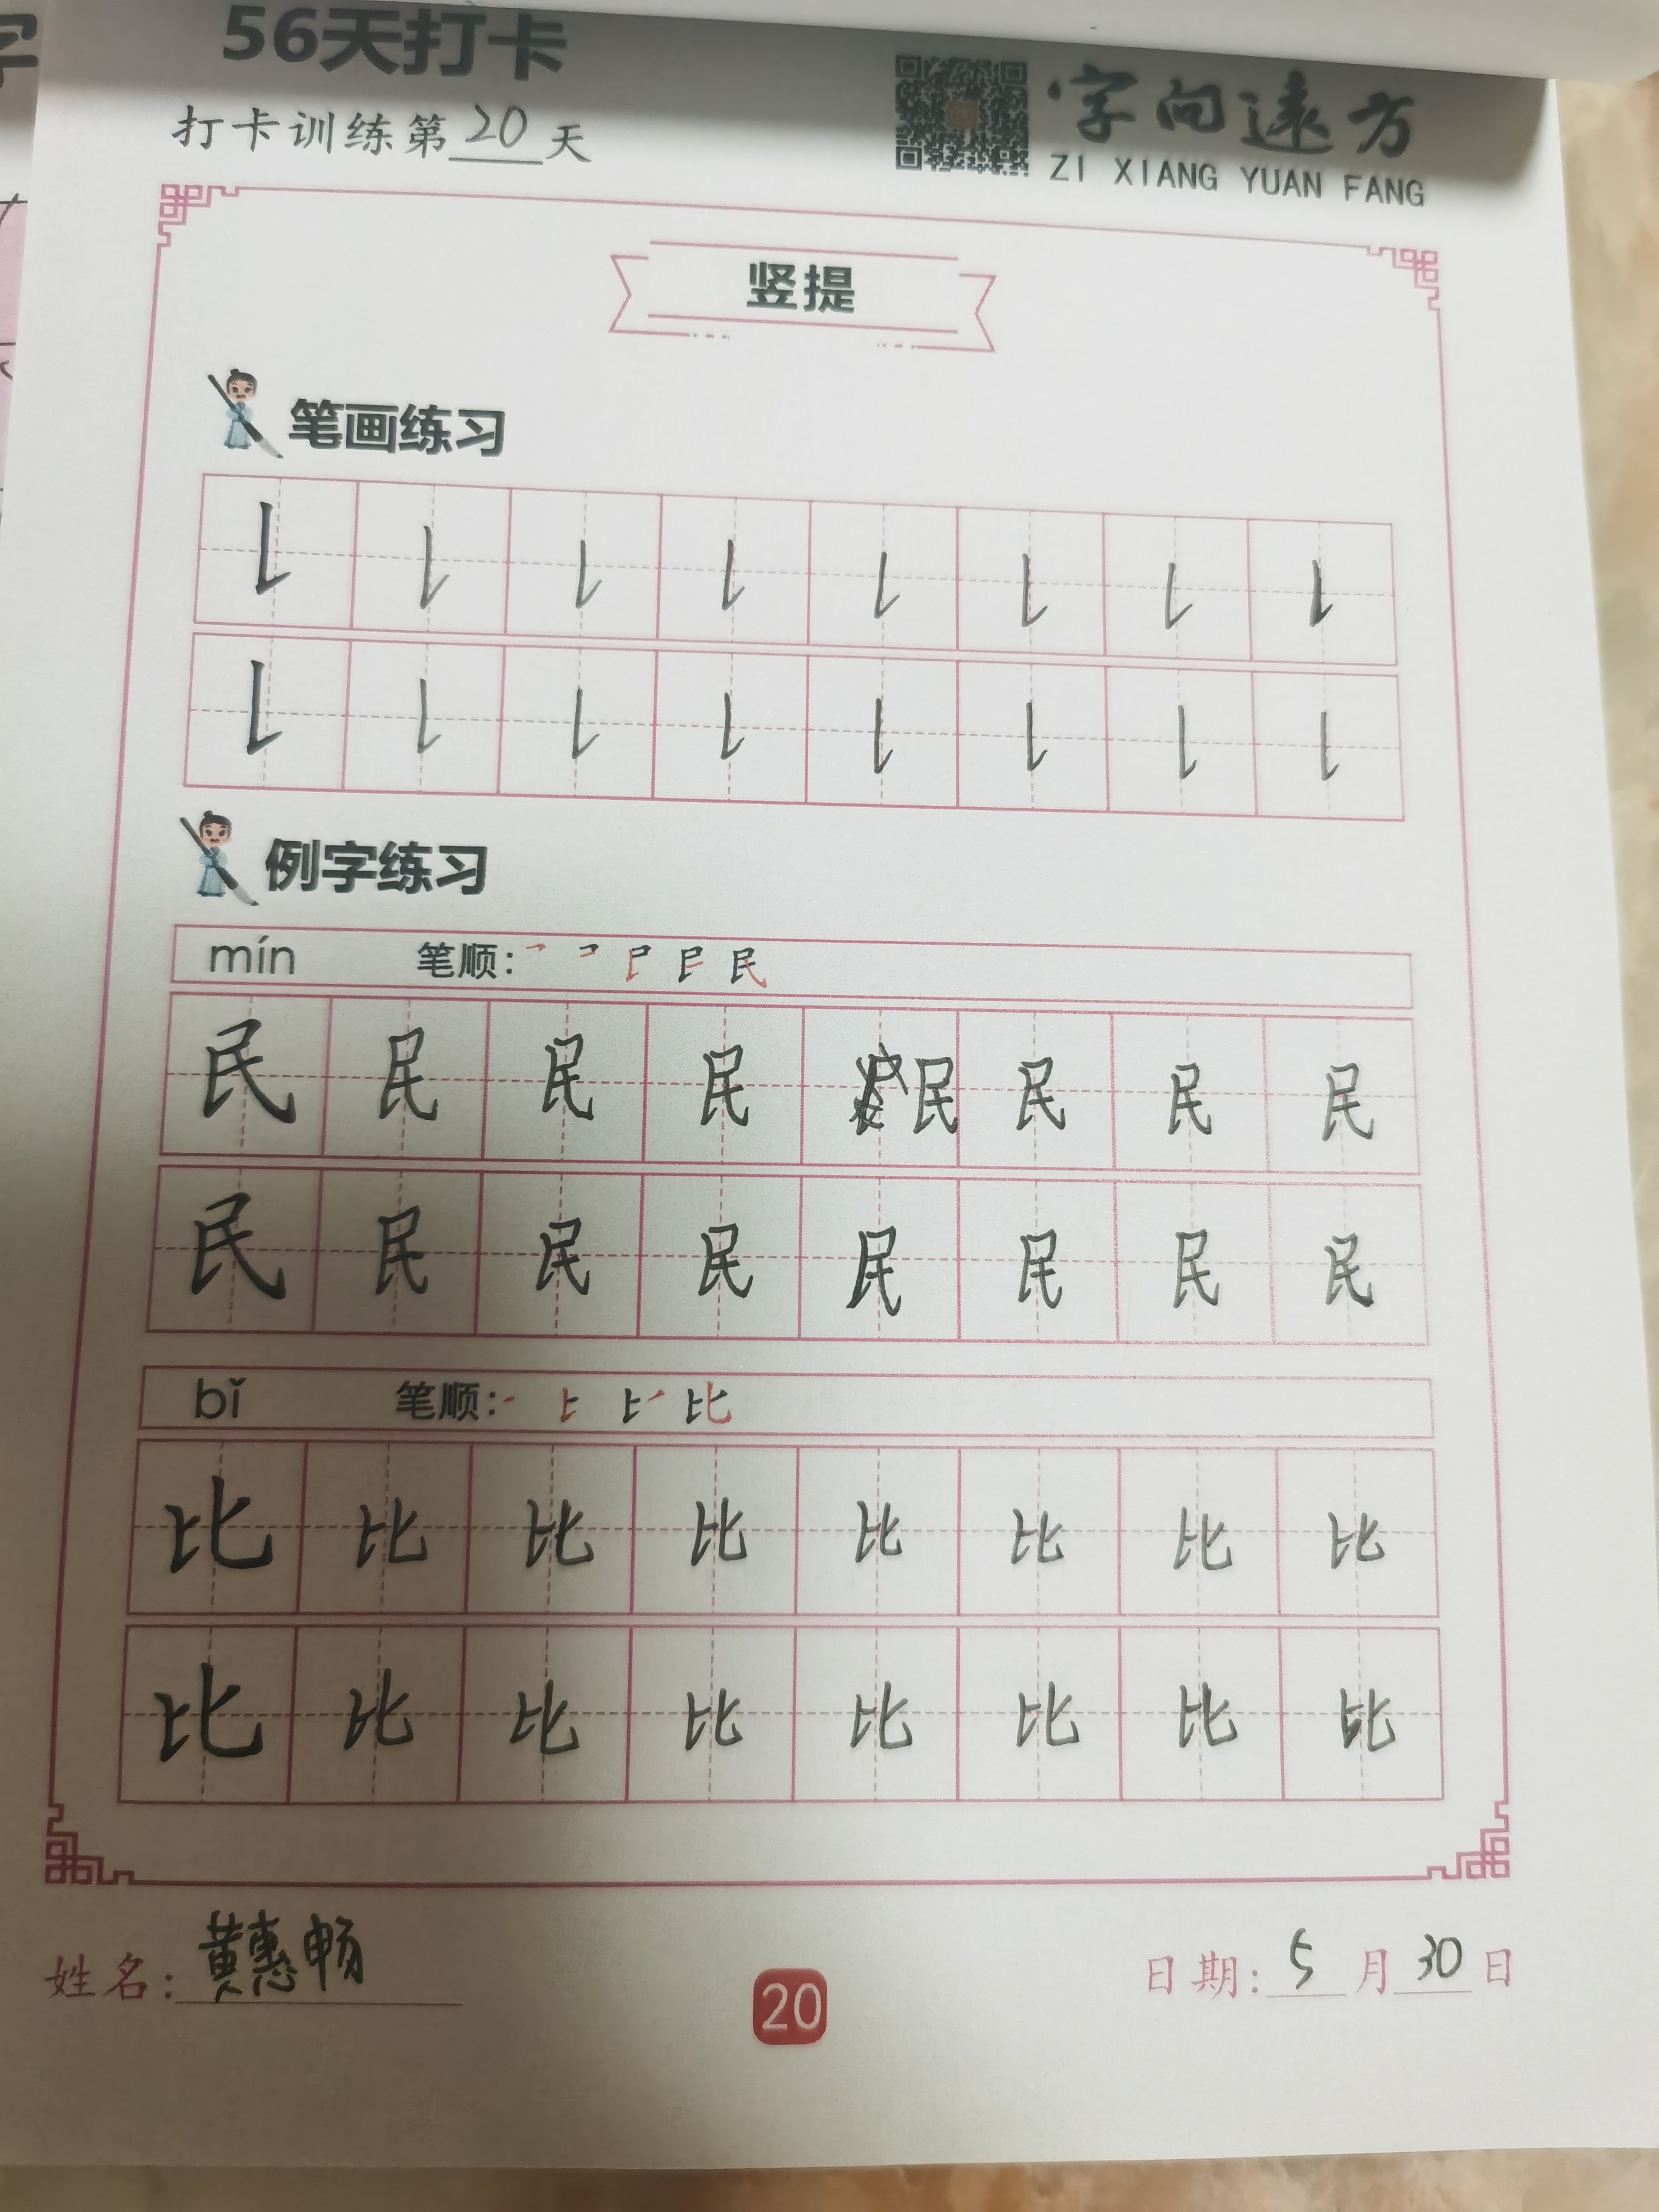 56天打卡
打卡训练第20天
字向远方
ZI XIANG YUAN FANG
竖提
笔画练习
例字练习
mín 笔顺: 民
民 民 民 民 民 民 民 民
民 民 民 民 民 民 民 民
bǐ 笔顺: 比
比 比 比 比 比 比 比 比
比 比 比 比 比 比 比 比
姓名: 黄惠畅
20
日期: 5月30日